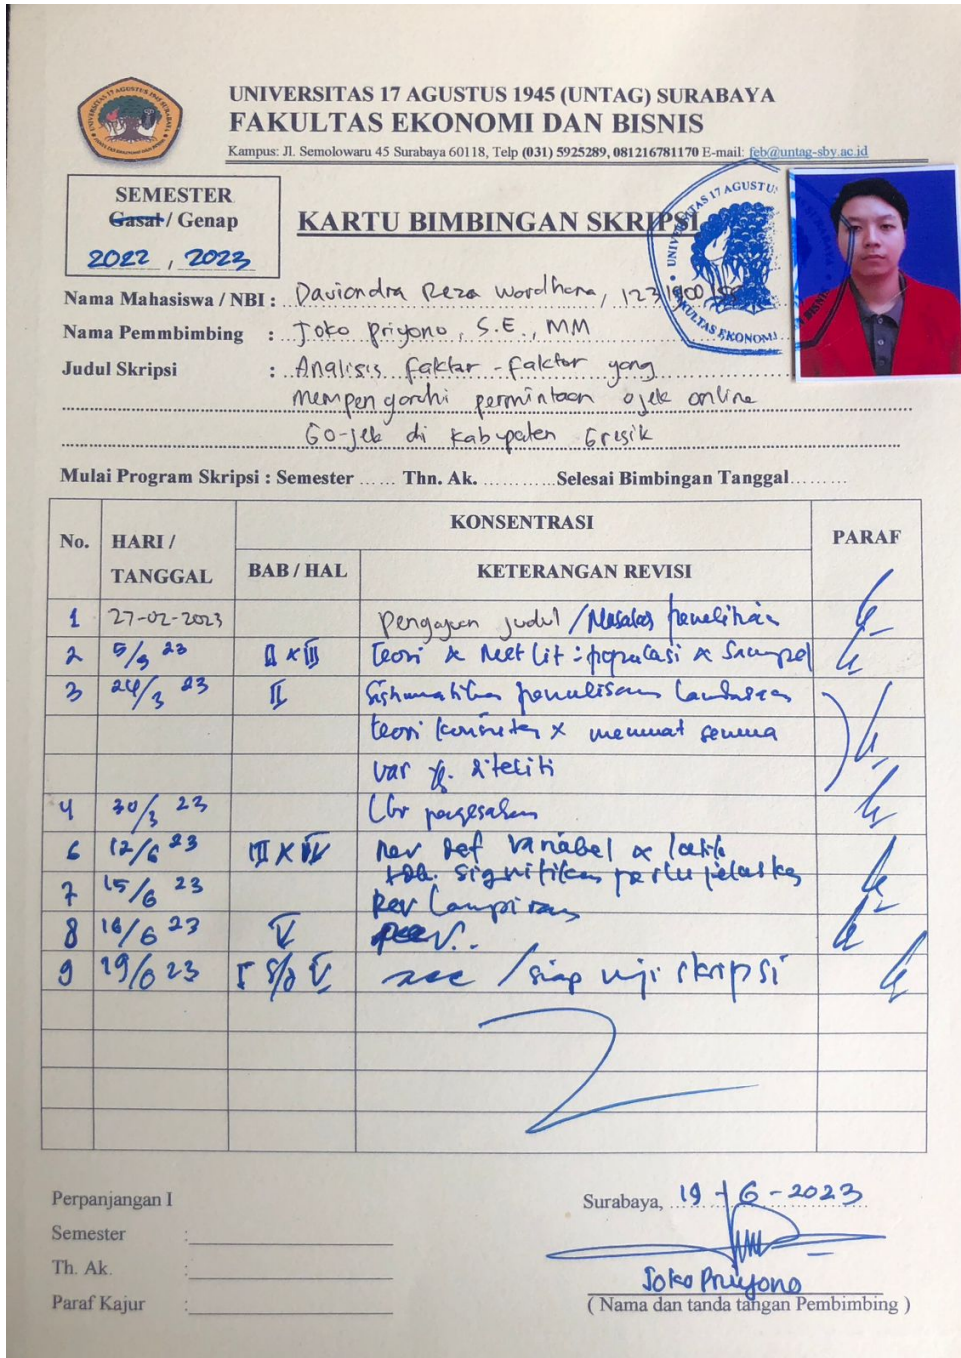 UNIVERSITAS 17 AGUSTUS 1945 (UNTAG) SURABAYA
FAKULTAS EKONOMI DAN BISNIS
Kampus: Jl. Semolowaru 45 Surabaya 60118, Telp (031) 5925289, 081216781170 E-mail: feb@untag-sby.ac.id
SEMESTER
Gasal / Genap
2022, 2023
KARTU BIMBINGAN SKRIPSI
Nama Mahasiswa / NBI : Daviondra Reza Wardhana, 1231900
Nama Pemmbimbing : Joko Priyono, S.E., MM
Judul Skripsi : Analisis faktar - faktor yang
mempengaruhi permintaan ojek online
Go-jek di Kabupaten Gresik
Mulai Program Skripsi : Semester ...... Thn. Ak. ............ Selesai Bimbingan Tanggal.........
No. HARI / TANGGAL KONSENTRASI PARAF
BAB / HAL KETERANGAN REVISI
1 27-02-2023 Pengajuan judul / Masalah penelitian
2 5/3 23 II & III teori & Met Lit : populasi & Sampel
3 24/3 23 II Sistimatika penulisan landasan
teori konsisten & memuat semua
var yg. diteliti
4 30/3 23 Lbr pengesahan
6 12/6 23 III & IV Rev def variabel &
7 15/6 23 signifikan perlu jelaskan
Rev Lampiran
8 16/6 23 V Rev..
9 19/6 23 I s/d V acc / siap uji skripsi
Perpanjangan I
Semester :
Th. Ak. :
Paraf Kajur :
Surabaya, 19 - 6 - 2023
Joko Priyono
( Nama dan tanda tangan Pembimbing )